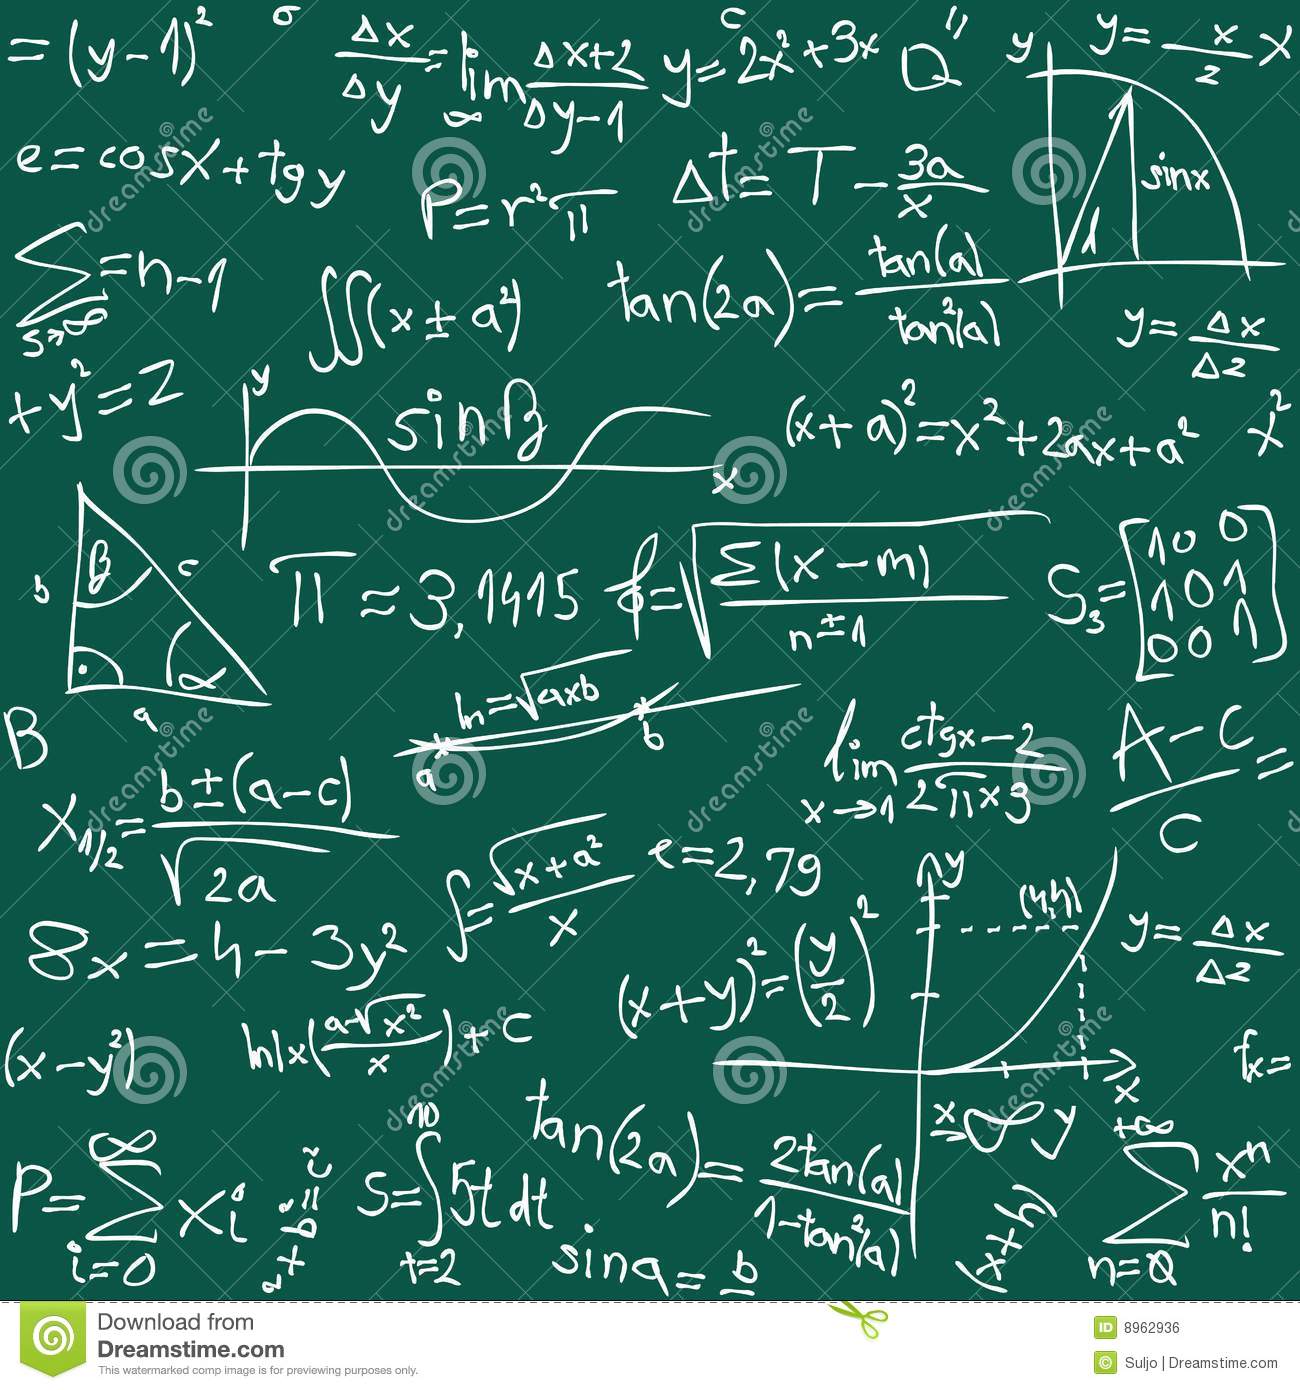 = (y-1)²
σ
Δx/Δy = lim ∞ Δx+2/Δy-1
c
y=2x²+3x
Q"
y= x/z X
e=cosx+tgy
P=r²π
Δt= T - 3a/x
y
sinx
Σ s→∞ =n-1
∬(x±a²)
tan(2a)= tan(a)/tan²(a)
y= Δx/Δz
+y²=2
y
sinβ
x
(x+a)²=x²+2ax+a²
x²
b
β
c
α
a
π≈3,1415
=√Σ(x-m)/n±1
S₃= [10 0
101
00 1]
B
ln=√axb
a
b
lim x→1 ctgx-2/2πx3
A-C/C =
X₁/₂= b±(a-c)/√2a
∫= √x+a²/x
e=2,79
y
(4,4)
y= Δx/Δz
8x=4-3y²
(x+y)²=(y/2)²
(x-y²)
ln|x(a-√x²/x)+c
fx=
x
P= ∞ Σ i=0 xi i
a²+b²=c²
S= 10 ∫ t=2 5t dt
tan(2a)= 2tan(a)/1-tan²(a)
x⇒∞ y
(x+h)
+∞ Σ n=0 xⁿ/n!
sina= b
Download from
Dreamstime.com
This watermarked comp image is for previewing purposes only.
ID 8962936
© Suljo | Dreamstime.com